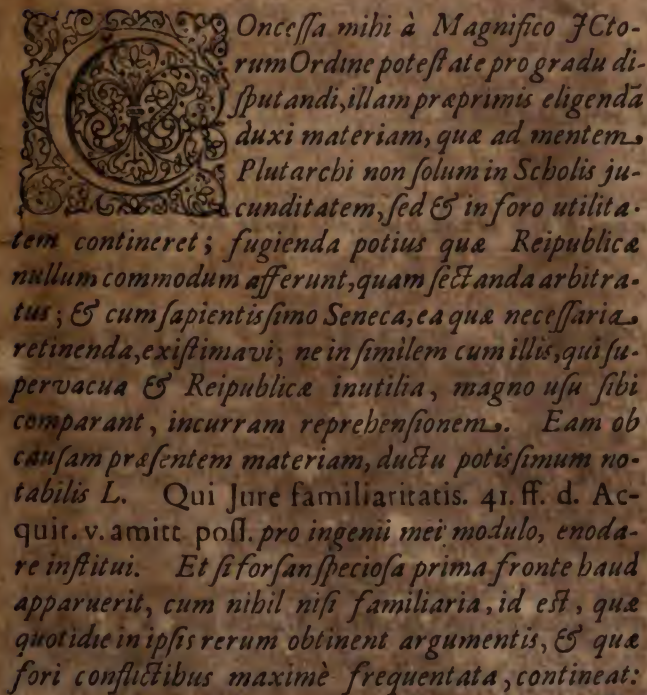 COnceſſa mihi à Magnifico JCto-
rum Ordine poteſtate pro gradu di-
ſputandi, illam præprimis eligendā
duxi materiam, quæ ad mentem
Plutarchi non ſolum in Scholis ju-
cunditatem, ſed & in foro utilita-
tem contineret; fugienda potius quæ Reipublicæ
nullum commodum afferunt, quam ſectanda arbitra-
tus; & cum ſapientisſimo Seneca, ea quæ neceſſaria
retinenda, exiſtimavi; ne in ſimilem cum illis, qui ſu-
pervacua & Reipublicæ inutilia, magno uſu ſibi
comparant, incurram reprehenſionem. Eam ob
cauſam præſentem materiam, ductu potisſimum no-
tabilis L. Qui Jure familiaritatis. 41. ff. d. Ac-
quir. v. amitt poſſ. pro ingenii mei modulo, enoda-
re inſtitui. Et ſi forſan ſpecioſa prima fronte haud
apparuerit, cum nihil niſi familiaria, id eſt, quæ
quotidie in ipſis rerum obtinent argumentis, & quæ
fori conflictibus maximè frequentata, contineat: